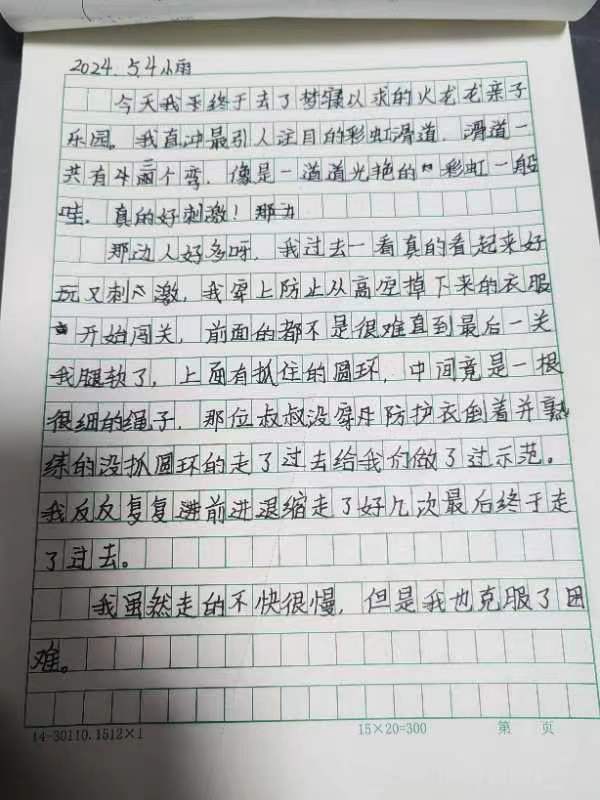 2024.5.4小雨
今天我终于去了梦寐以求的火龙龙亲子
乐园。我直冲最引人注目的彩虹滑道,滑道一
共有三个弯,像是一道道光艳的"彩虹一般
哇,真的好刺激!那边
那边人好多呀,我过去一看真的看起来好
玩又刺激,我穿上防止从高空掉下来的衣服
开始闯关,前面的都不是很难直到最后一关
我腿软了,上面有抓住的圆环,中间竟是一根
很细的绳子,那位叔叔没穿防护衣倒着并熟
练的没抓圆环的走了过去给我们做了过示范。
我反反复复进前进退缩走了好几次最后终于走
了过去。
我虽然走的不快很慢,但是我也克服了困
难。
14-30110.1512×1 15×20=300 第 页